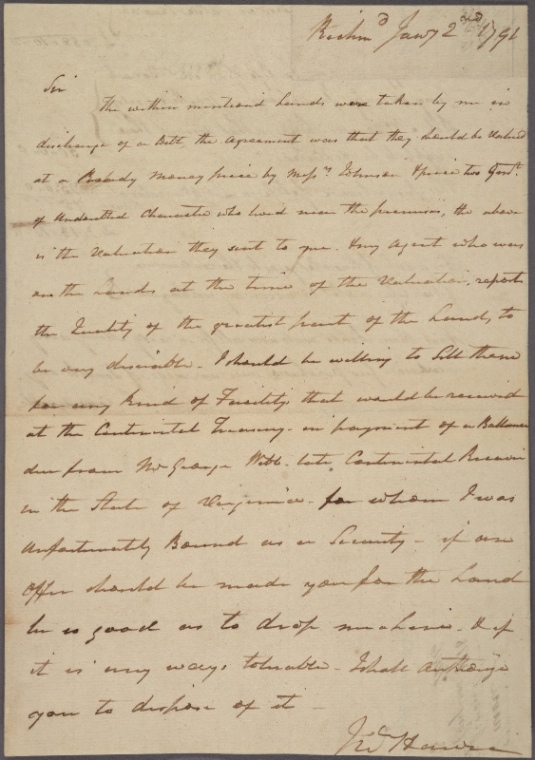 Richmd Jany 2nd 1791
Sir
The within mentiond Lands were taken by me in
discharge of a Debt the Agreement was that they should be Valued
at a Ready money price by Messrs Johnson & price two Gent.
of Undoubted Character who lived near the premises, the above
is the Valuation they sent to me. & my Agent who was
on the Lands at the time of the Valuation, reports
the Quality of the greatest part of the Land, to
be very desirable. I should be willing to Sell them
for any Kind of Facility, that would be received
at the Continental Treasury. in payment of a Ballance
due from Mr George Webb. late Continental Receiver
in the State of Virginia. for whom I was
Unfortunately Bound as a Security - if an
Offer should be made you for the Land
be so good as to drop me a line. & if
it is any ways toluable. I shall Authorize
you to dispose of it -
Jno Harvie